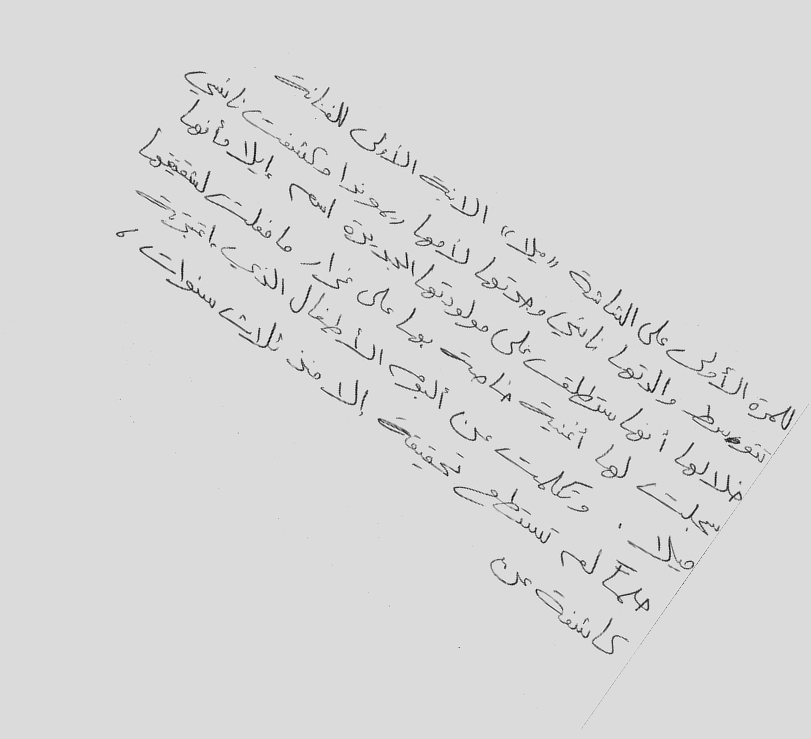 للمرة الأولى على الشاشة "ميلا" الابنة الأولى للفنانة
تتوسط والدتها نانسي وجدتها لأمها ريموندا وكشفت نانسي
خلالها أنها ستطلق على مولودتها الجديدة اسم إيلا وأنها
سجلت لها أغنية خاصة بها على غرار ما فعلت لشقيقتها
ميلا . وتكلمت عن ألبوم الأطفال الذي اعتبرته
حلماً لم تستطع تحقيقه إلا منذ ثلاث سنوات ،
كاشفة عن